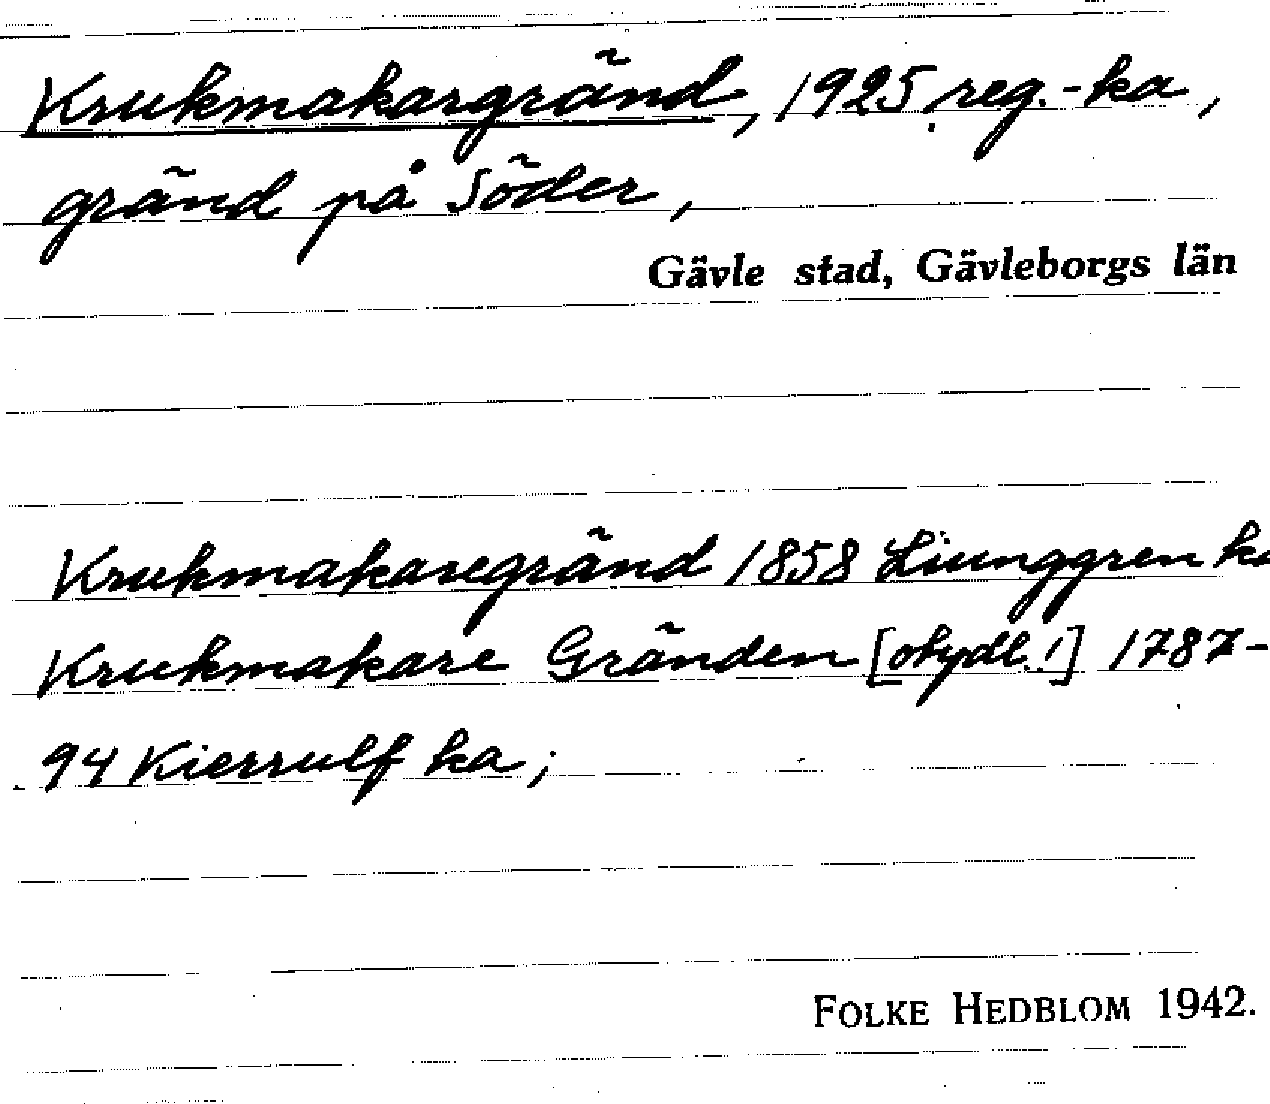 Krukmakargränd, 1925 reg.-ka,
gränd på Söder,
Gävle stad, Gävleborgs län
Krukmakaregränd 1858 Liunggren ka
Krukmakare Gränden [otydl.!] 1787-
94 Kierrulf ka;
FOLKE HEDBLOM 1942.